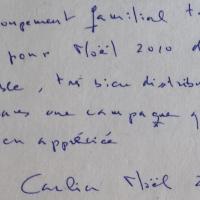 ongement familial t
pour Noël 2010 d
ble, très bien distribu
ans une campagne q
en appréciée
Carlier Noël 2